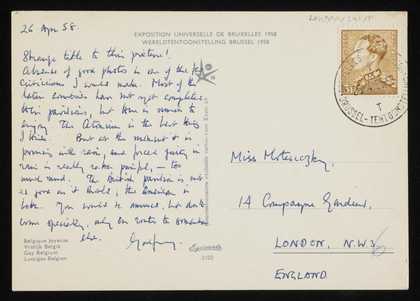 26 Apr 58.
EXPOSITION UNIVERSELLE DE BRUXELLES 1958
WERELDTENTOONSTELLING BRUSSEL 1958
Strange title to this picture!
Absence of good photos is one of the few
criticisms I would make. Most of the
Latin countries have not yet completed
their pavilions, but there is much to
enjoy. The Atomium is the best thing
I think. But at the moment it is
pouring with rain, and
rain is really rather — too
much mud. The British pavilion is not
as good as it should, the American is
better. You would be amused, but don't
come specially, only en route to somewhere
else.
Godfrey
Belgique Joyeuse
Vrolijk België
Gay Belgium
Lustiges Belgien
BRUSSEL-TENTOONSTELLING
T
Miss Motesiczky,
14 Compayne Gardens,
LONDON, N.W.6
ENGLAND